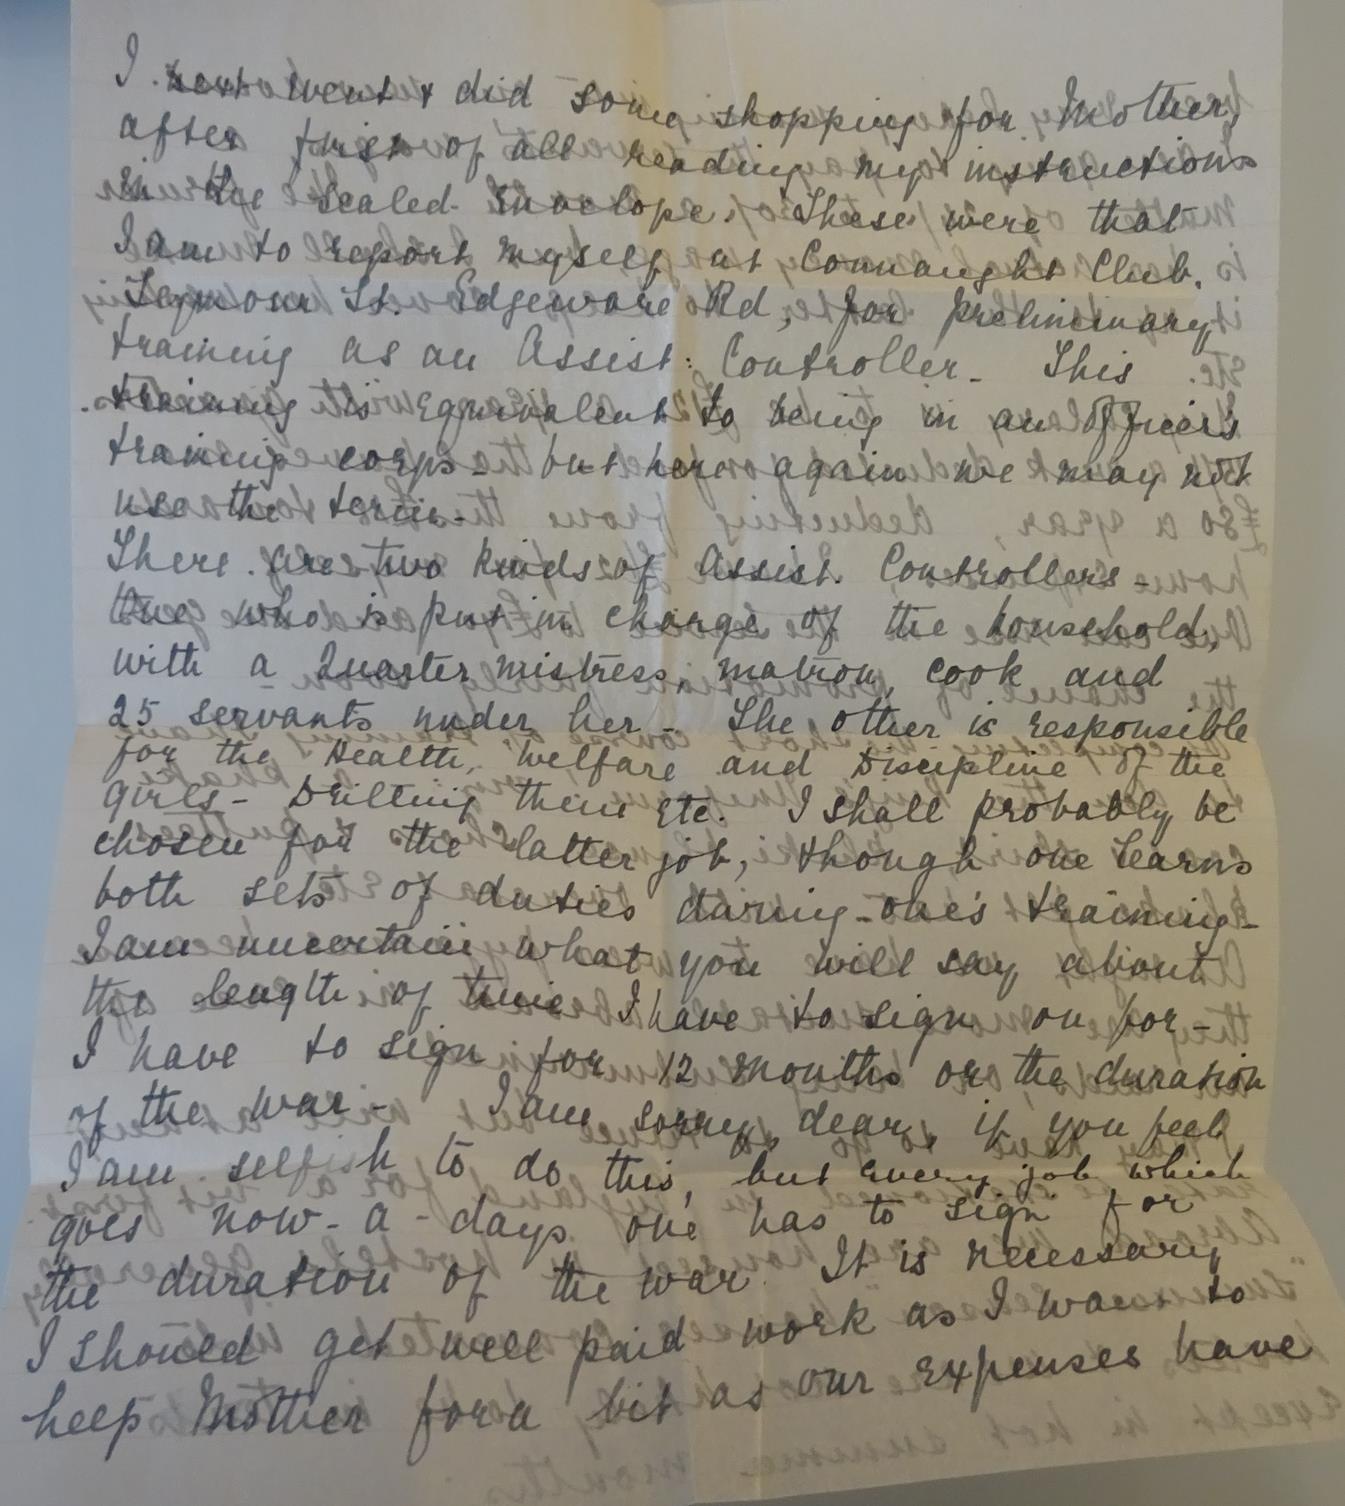 I next went & did some shopping for Mother,
after first of all reading my instructions
in the sealed envelope. These were that
I am to report myself at Connaught Club,
Seymour St. Edgeware Rd, for preliminary
training as an Assist: Controller - This
training is equivalent to being in an Officer's
training corps - but here again we may not
use the term -
There are two kinds of Assist. Controllers -
One who is put in charge of the household,
with a Quarter mistress, matron, cook and
25 servants under her - The other is responsible
for the Health, Welfare and Discipline of the
girls - Drilling them etc. I shall probably be
chosen for the latter job, though one learns
both sets of duties during one's training -
I am uncertain what you will say about
the length of time I have to sign on for -
I have to sign for 12 months or the duration
of the war - I am sorry, dear, if you feel
I am selfish to do this, but every job which
goes now-a-days one has to sign for
the duration of the war. It is necessary
I should get well paid work as I want to
help Mother for a bit as our expenses have